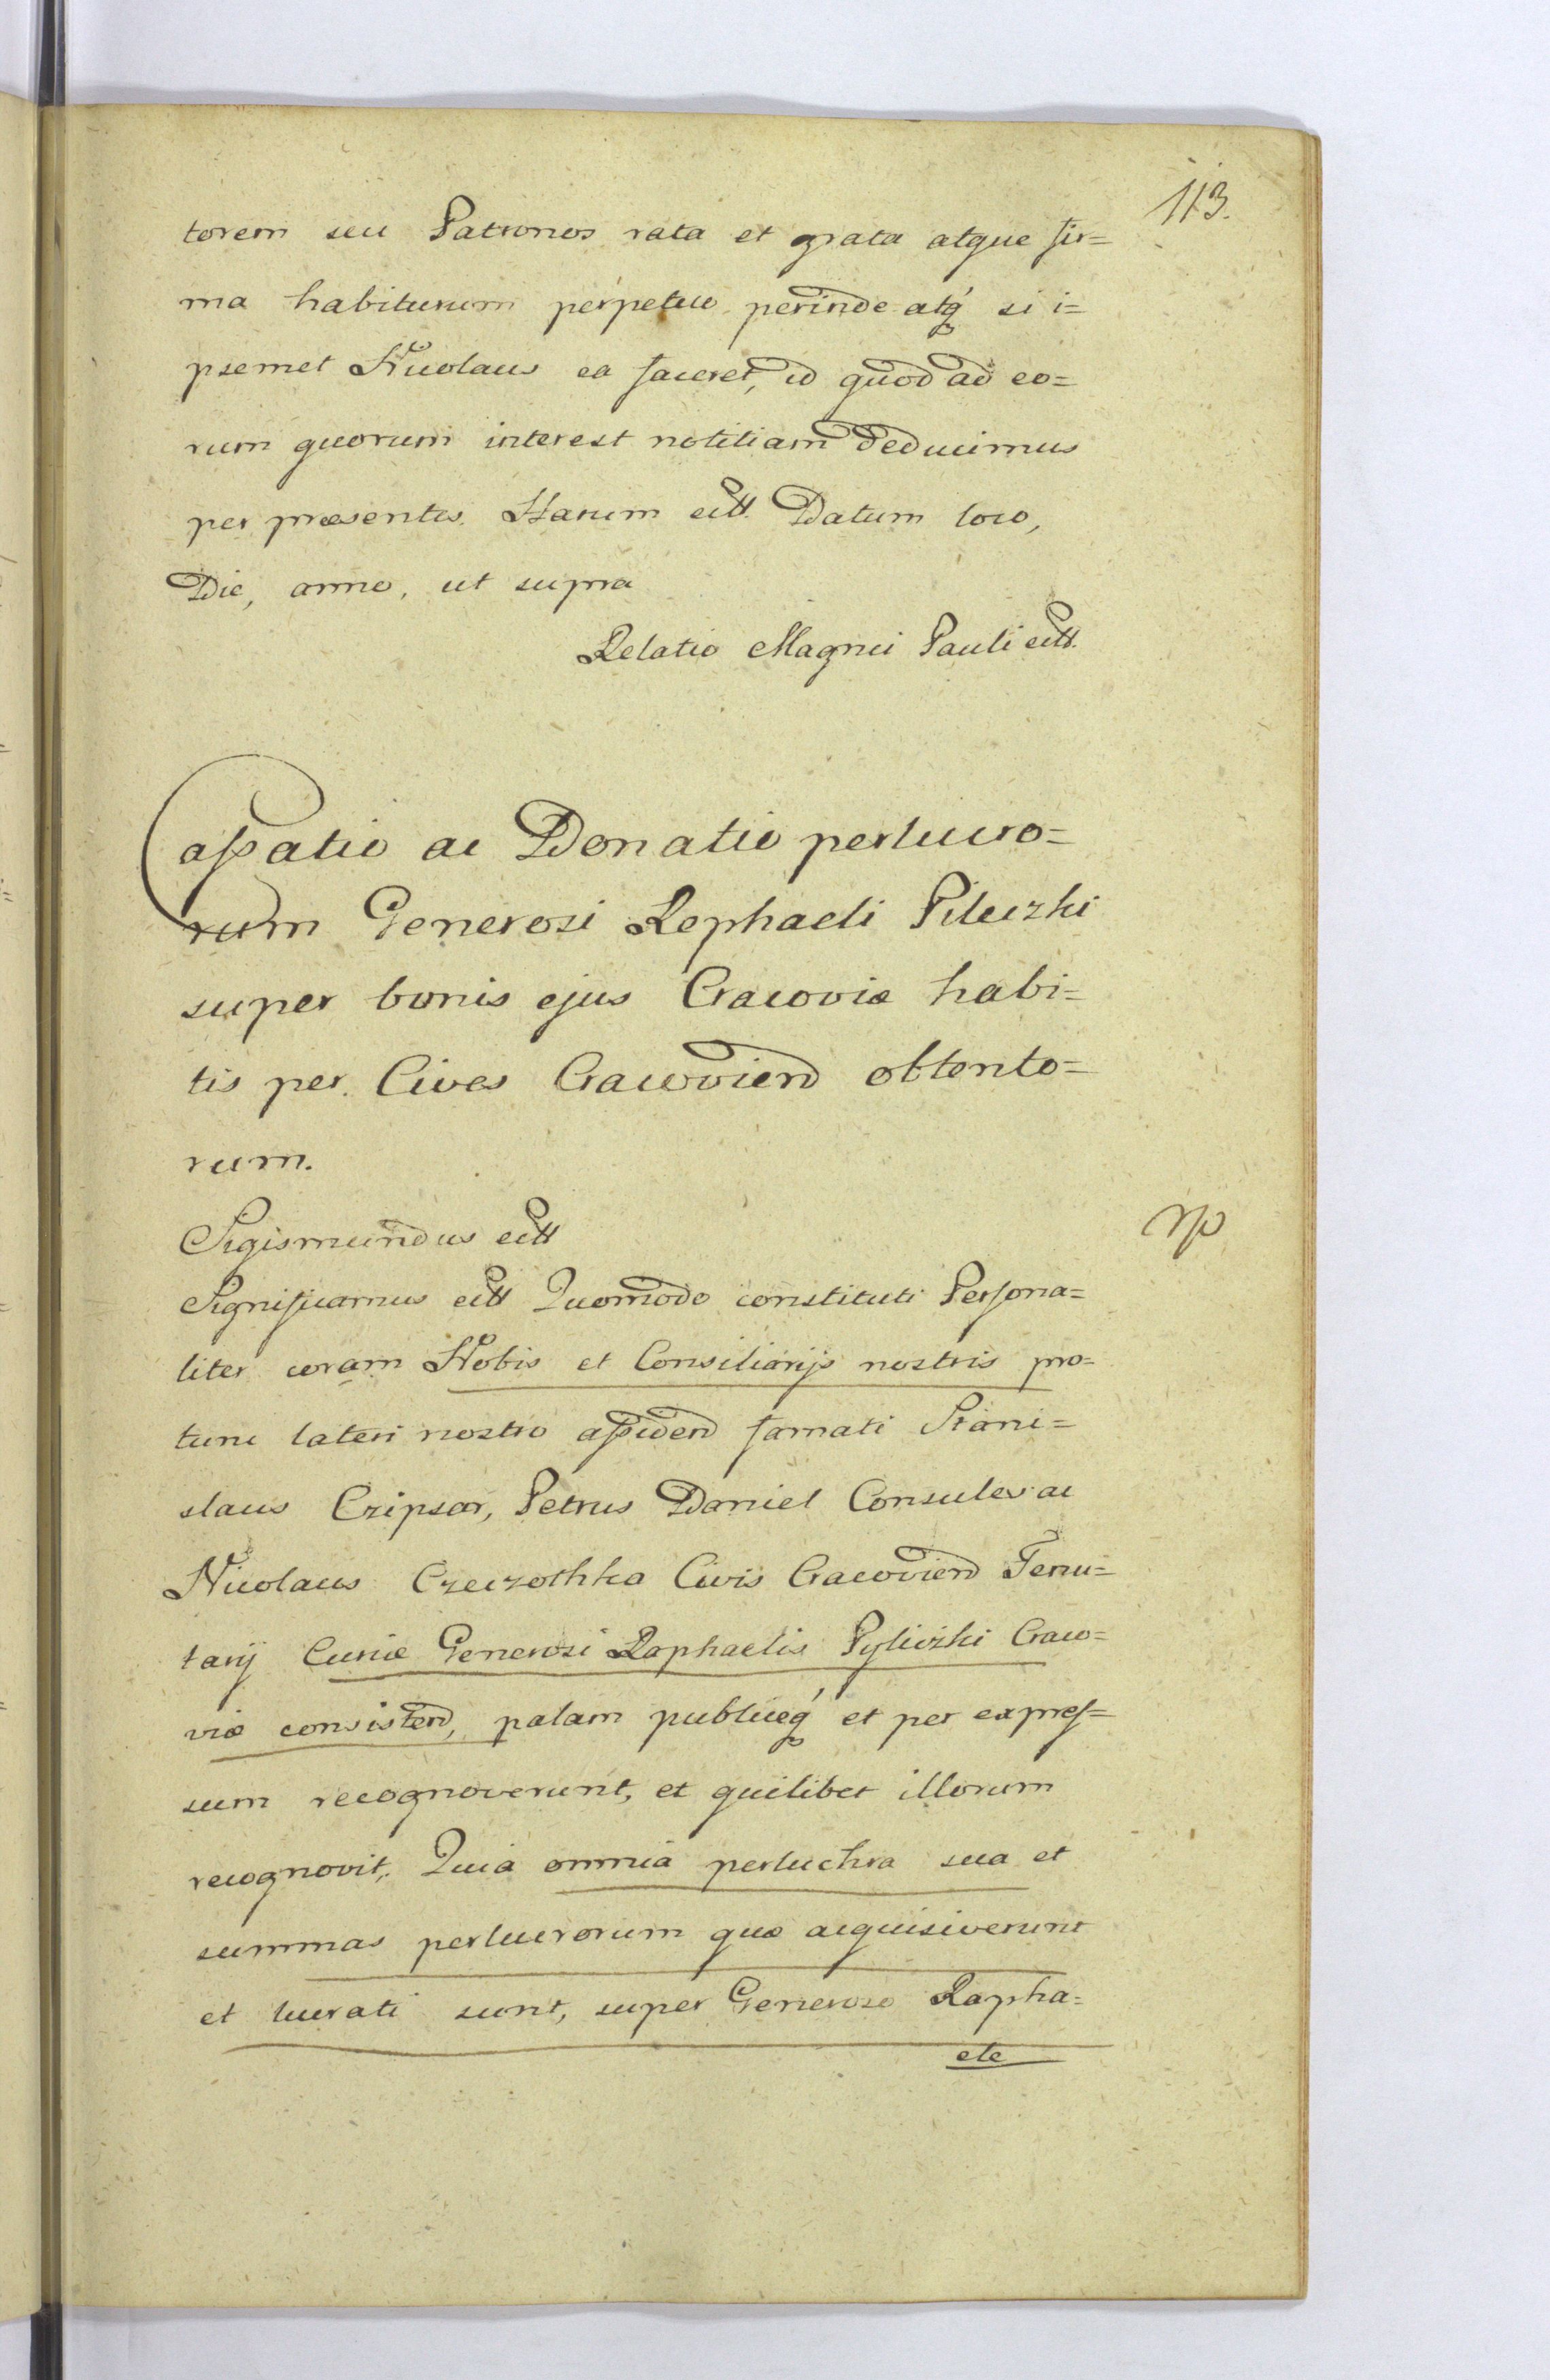 113.
torem seu Patronos rata et grata atque fir=
ma habiturum perpetuo perinde atq́ si i=
psemet Nicolaus ea faceret, id quod ad eo=
rum quorum interest notitiam deducimus
per præsentes. Harum ectt. Datum loco,
Die, anno, ut supra
Relatio Magnci Pauli ectt.
Caſsatio ac Donatio perlucro=
rum Generosi Rephaeli Pileczki
super bonis ejus Cracoviæ habi=
tis per Cives Cracovien obtento=
rum.
Sigismundus ectt
Significamus ectt Quomodo constituti Persona=
liter coram Nobis et Consiliarijs nostris pro=
tunc lateri nostro aſsiden famati Stani=
slaus Czipser, Petrus Daniel Consules ac
Nicolaus Czeczothka Civis Cracovien Tenu=
tarij Curiæ Generosi Raphaelis Pyliczki Craco=
viæ consisten, palam publiceq́ et per expreſ=
sum recognoverunt, et quilibet illorum
recognovit, Quia omnia perluchra sua et
summas perlucrorum quæ acquisiverunt
et lucrati sunt, super Generoso Rapha=
ele